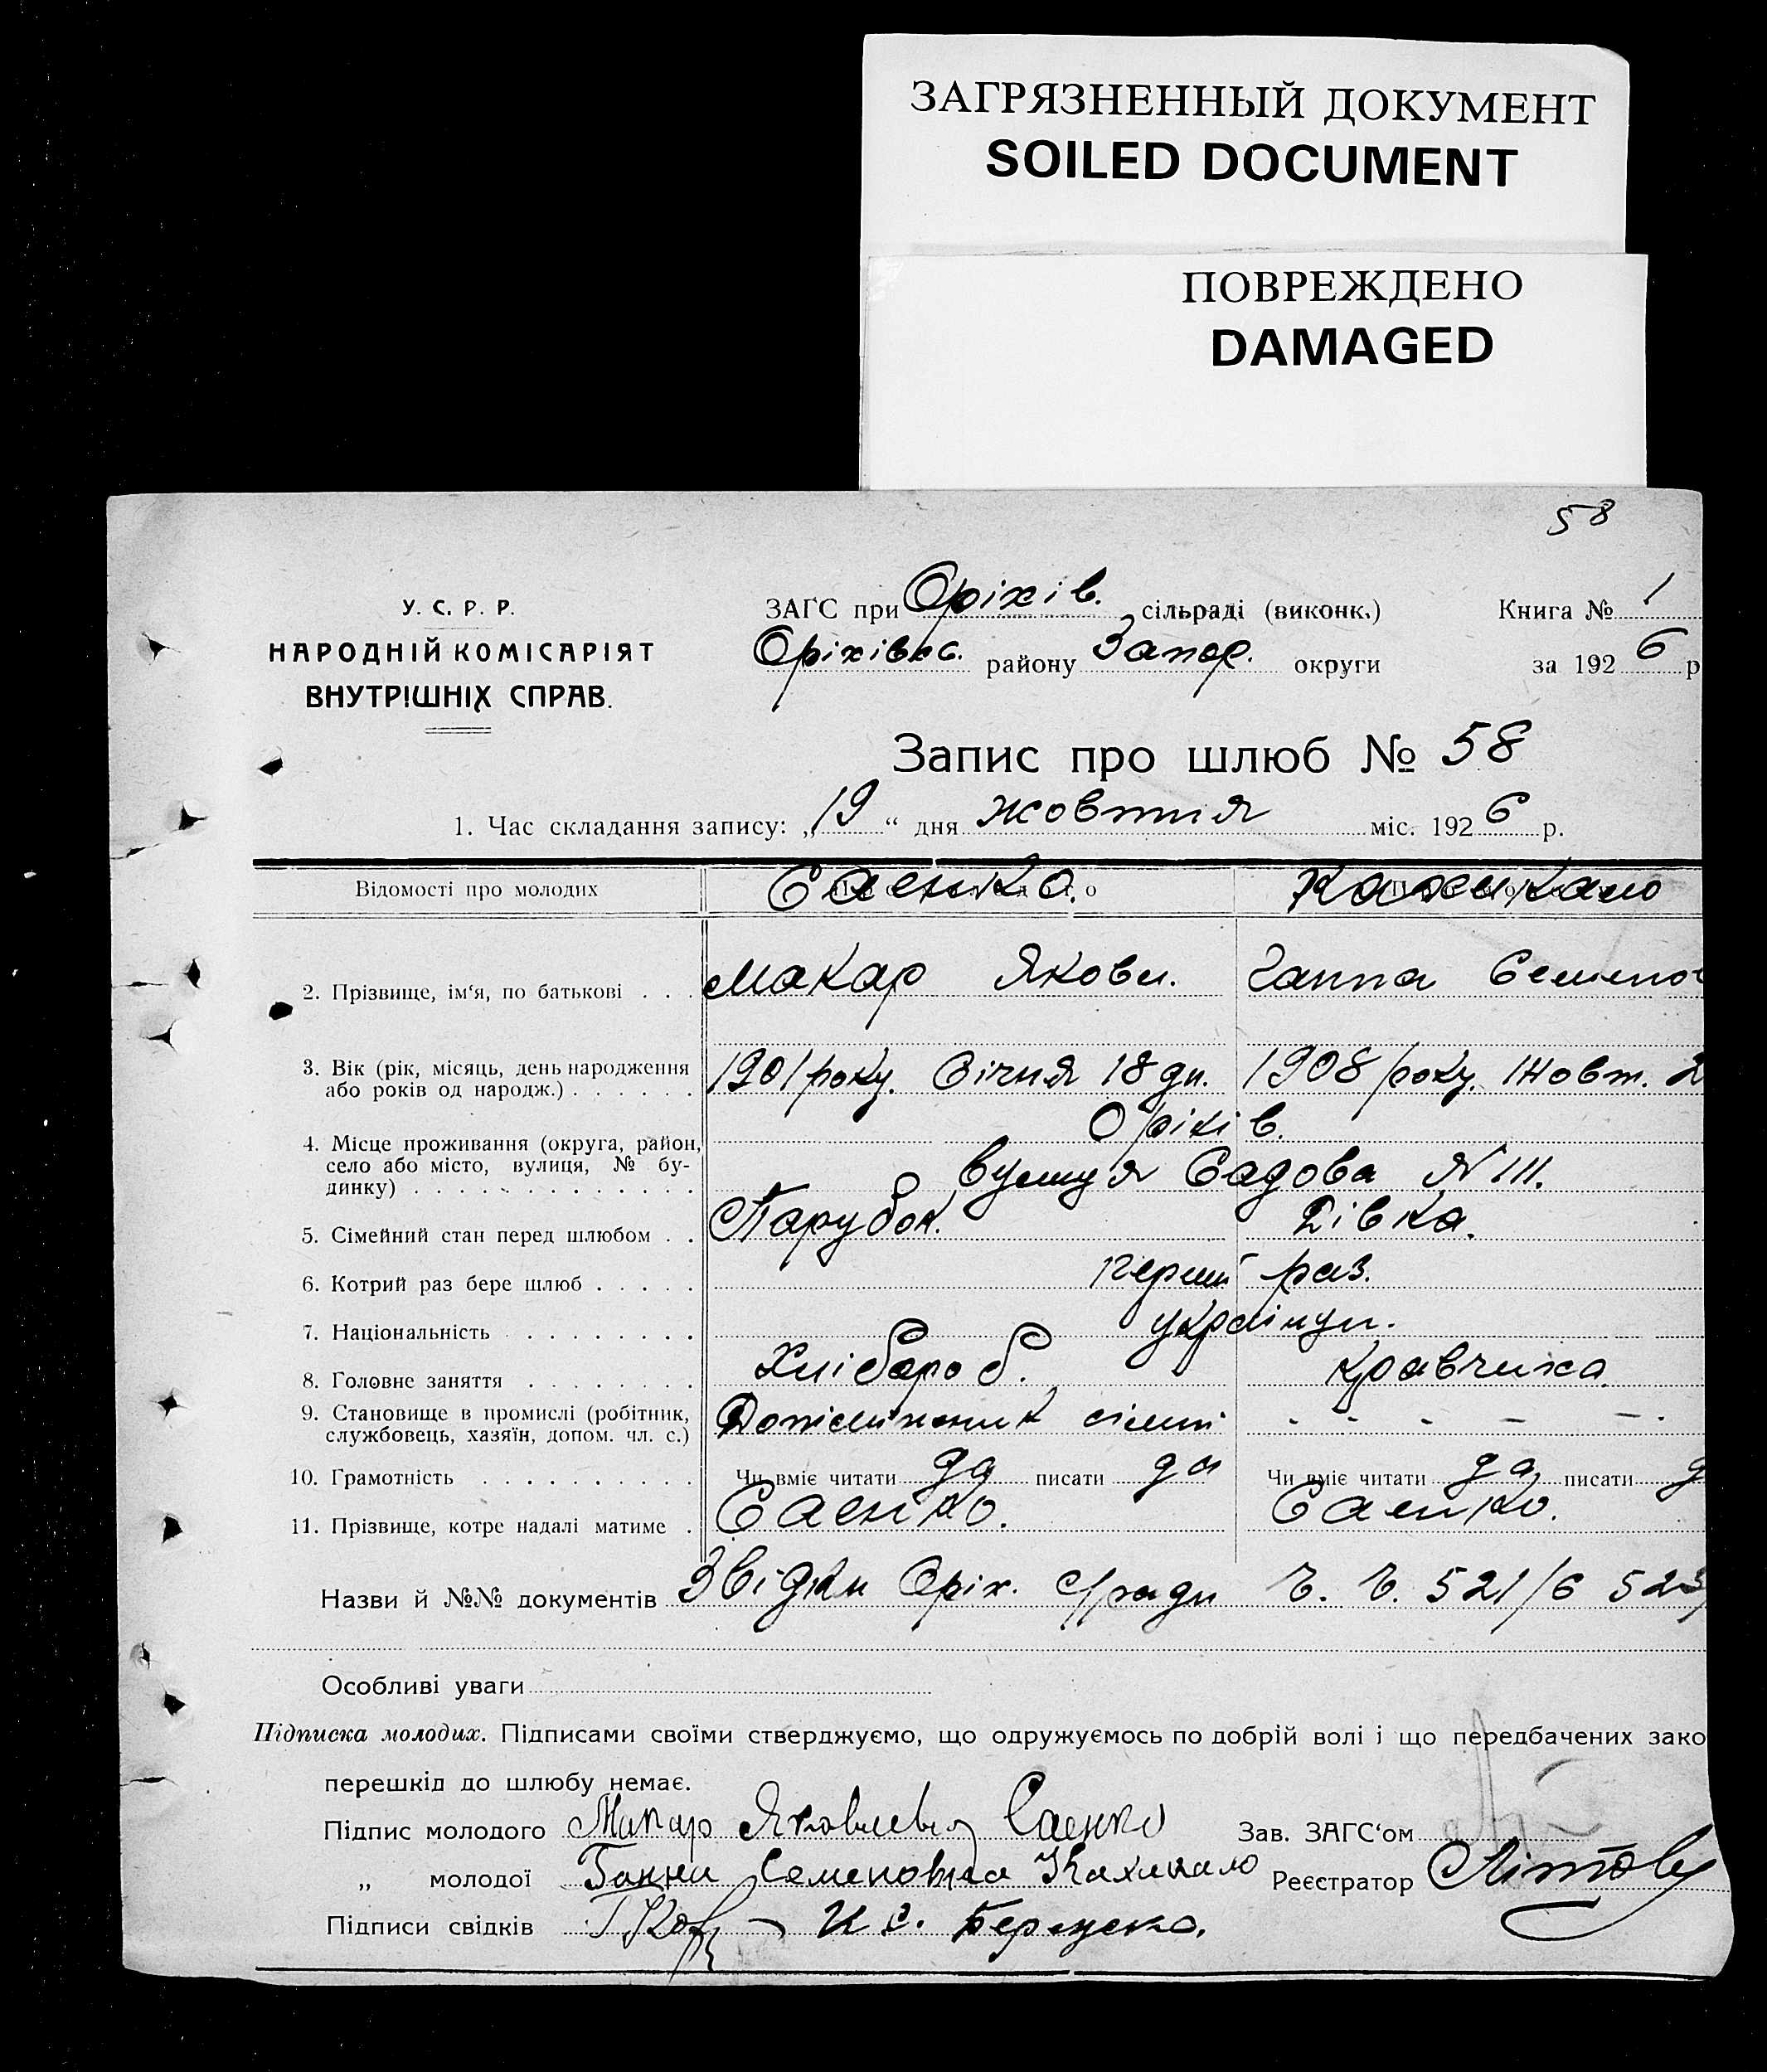 ЗАГРЯЗНЕННЫЙ ДОКУМЕНТ
SOILED DOCUMENT
ПОВРЕЖДЕНО
DAMAGED
58
У. С. Р. Р.
НАРОДНІЙ КОМІСАРІЯТ
ВНУТРІШНІХ СПРАВ.
ЗАГС при Оріхів. сільраді (виконк.) Книга № 1
Оріхівкс. району Запор. округи за 1926 р
Запис про шлюб № 58
1. Час складання запису: „19“ дня жовтня міс. 1926 р.
Відомості про молодих Саенко. Кахикало
2. Прізвище, ім‘я, по батькові . . . Макар Якови. Ганна Семенов
3. Вік (рік, місяць, день народження 1901 року. Січня 18 дн. 1908 року. Жовт. 2
або років од народж.) . . . . . .
4. Місце проживання (округа, район, Оріхів.
село або місто, вулиця, № бу- вулиця Садова № 111.
динку) . . . . . . . . . . . . .
5. Сімейний стан перед шлюбом . . Парубок. Дівка.
6. Котрий раз бере шлюб . . . . . перший раз.
7. Національність . . . . . . . . українци.
8. Головне заняття . . . . . . . . Хлібороб. кравчиха
9. Становище в промислі (робітник, Допоміжник сімьї - - - - - .
службовець, хазяїн, допом. чл. с.)
10. Грамотність . . . . . . . . . . Чи вміє читати да писати да Чи вміє читати да писати д
11. Прізвище, котре надалі матиме . Саенко. Саенко.
Назви й №№ документів Звідки Оріх. с/ради Ч. Ч. 521/6 523/
Особливі уваги
Підписка молодих. Підписами своїми стверджуємо, що одружуємось по добрій волі і що передбачених зако
перешкід до шлюбу немає.
Підпис молодого Макар Яковлевич Саенко Зав. ЗАГС‘ом
„ молодої Ганна Семеновна Кахикало Реєстратор
Підписи свідків И. С.